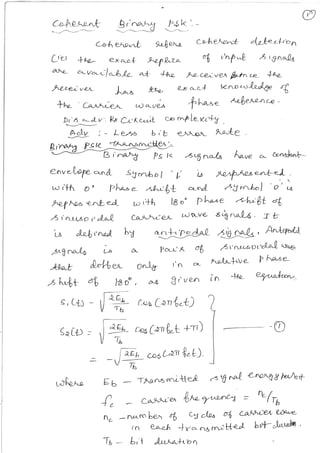 Coherent Binary PSK :-
Coherent Refers Coherent detection
(it) the exact Replica of input signals
are available at the Receiver since the
Receiver has the exact knowledge of
the Carrier waves phase reference.
Dis adv: Re Circuit complexity
Adv :- Less bit error Rate.
Binary PSK transmitter:-
Binary PSK signals have a constant
envelope and Symbol '1' is represented
with 0° phase shift and symbol '0' is
Represented with 180° phase shift of
sinusoidal Carrier wave signals. It
is defined by antipodal signals, Antipodal
signals is a Pair of sinusoidal
that differ only in a Relative phase
shift of 180°, as given in the equation.
S₁(t) = √(2Eb/Tb) Cos(2πfct)
S2(t) = √(2Eb/Tb) Cos(2πfct + π) —— ①
= -√(2Eb/Tb) Cos(2πfct).
where Eb - Transmitted signal energy
fc - Carrier frequency = nc/Tb
nc - number of cycles of carrier wave
in each transmitted bit
Tb - bit duration